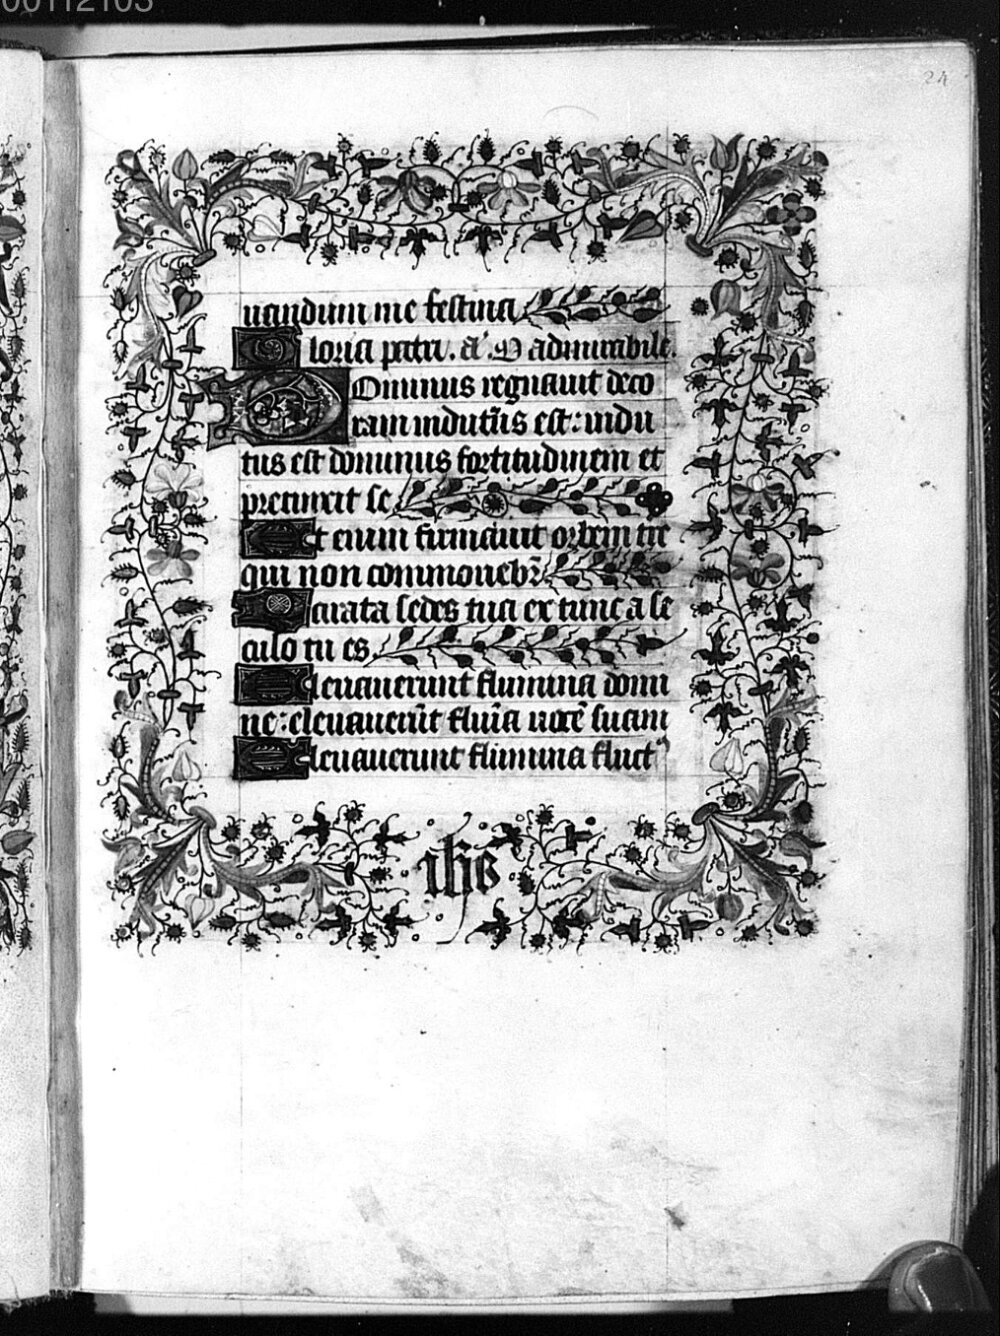 00112103
24
uandum me festina
Gloria patri. a͛ O admirabile.
Dominus regnauit deco
ram indutus̃ est: indu
tus est dominus fortitudinem et
precinxit se
Et enim firmauit orbem tre
qui non commouebr̃
Parata sedes tua ex tunc a se
culo tu es.
Eleuauerunt flumina domi
ne: eleuauerũt flumĩa uocẽ suam
Eleuauerunt flumina fluctꝰ
ihs